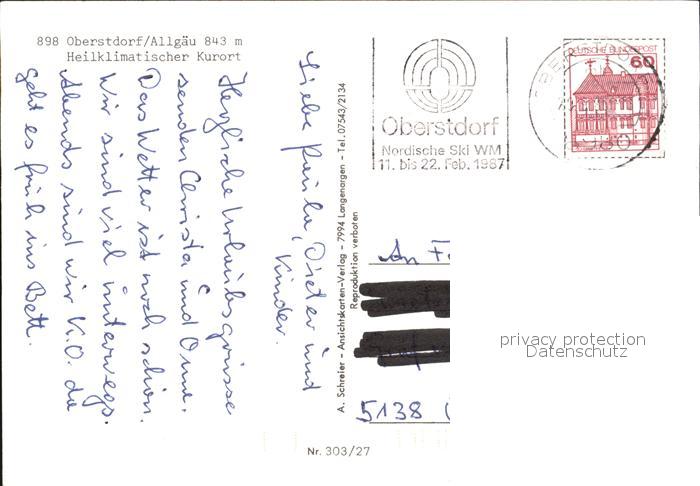 898 Oberstdorf/Allgäu 843 m
Heilklimatischer Kurort
Liebe Paula, Dieter und
Kinder.
Herzliche Urlaubsgrüsse
senden Christa und Omne.
Das Wetter ist noch schön.
Wir sind viel unterwegs.
Abends sind wir K.O. da
geht es früh ins Bett.
A. Schreier - Ansichtskarten-Verlag - 7994 Langenargen - Tel. 07543/2134
Reproduktion verboten
Oberstdorf
Nordische Ski WM
11. bis 22. Feb. 1987
DEUTSCHE BUNDESPOST
60
An F
5138
privacy protection
Datenschutz
Nr. 303/27